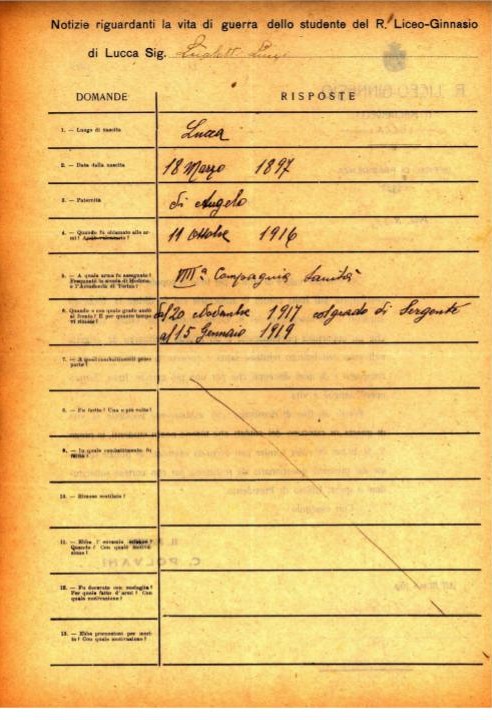 Notizie riguardanti la vita di guerra dello studente del R. Liceo-Ginnasio
di Lucca Sig.
DOMANDE RISPOSTE
1. — Luogo di nascita Lucca
2. — Data della nascita 18 Marzo 1897
3. — Paternità di Angelo
4. — Quando fu chiamato alle ar-
mi? 11 Ottobre 1916
5. — A quale arma fu assegnato?
Frequentò la scuola di Modena
e l'Accademia di Torino? VIIIª Compagnia Sanità
6. Quando e con quale grado andò
al fronte? E per quanto tempo
vi rimase? dal 20 Novembre 1917 col grado di Sergente
al 15 Gennaio 1919
7. — A quali combattimenti prese
parte?
8. — Fu ferito? Una o più volte?
9. — In quale combattimento fu
ferito?
10. — Rimase mutilato?
11. — Ebbe l'encomio solenne?
Quando? Con quale motiva-
zione?
12. — Fu decorato con medaglia?
Per quale fatto d'armi? Con
quale motivazione?
13. — Ebbe promozioni per meri-
to? Con quale motivazione?